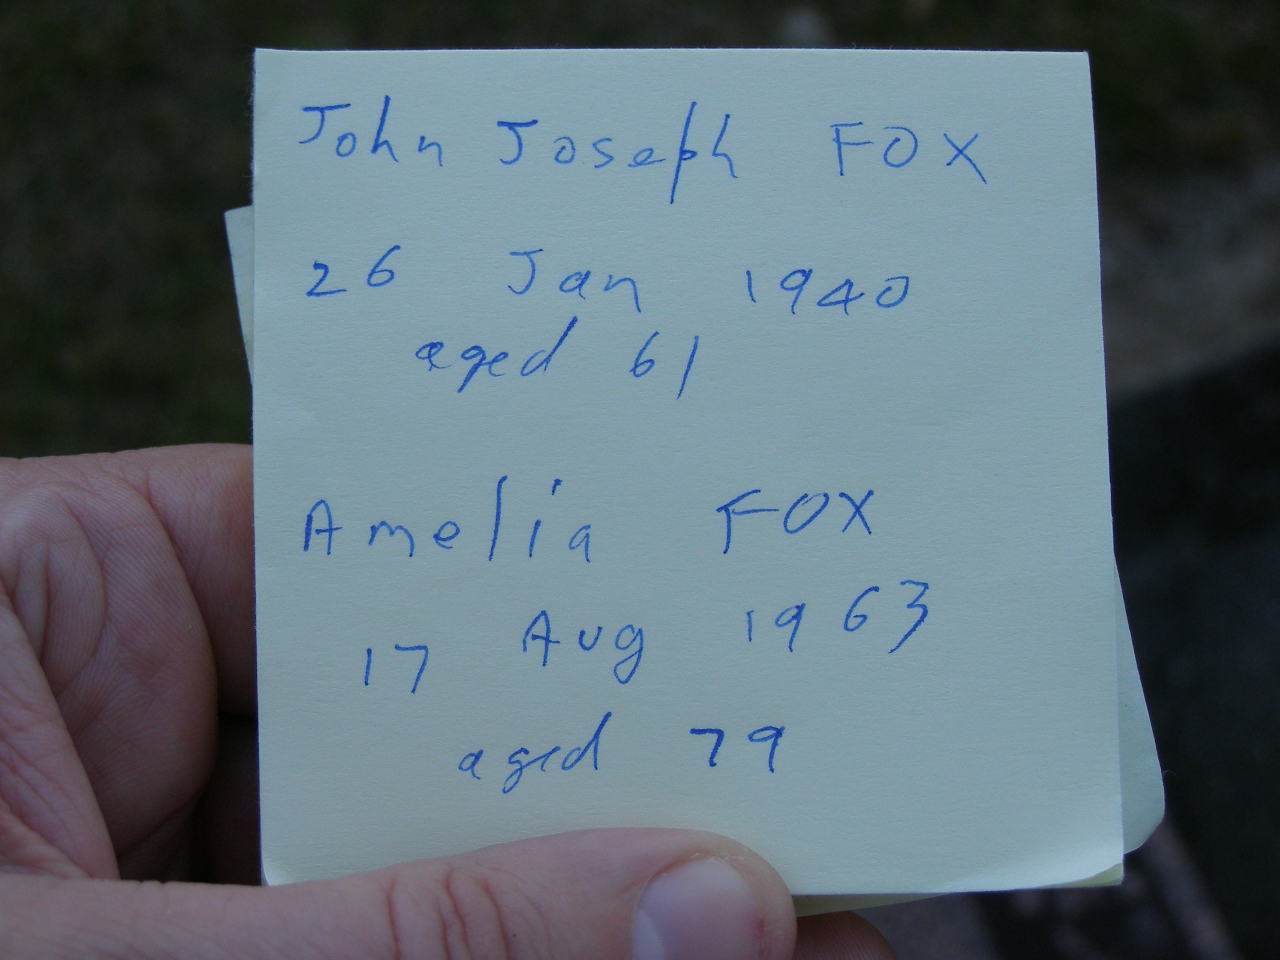 John Joseph FOX
26 Jan 1940
aged 61
Amelia FOX
17 Aug 1963
aged 79